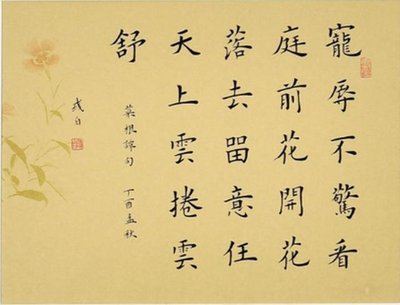 寵辱不驚看
庭前花開花
落去留意任
天上雲捲雲
舒
菜根譚句 丁酉孟秋